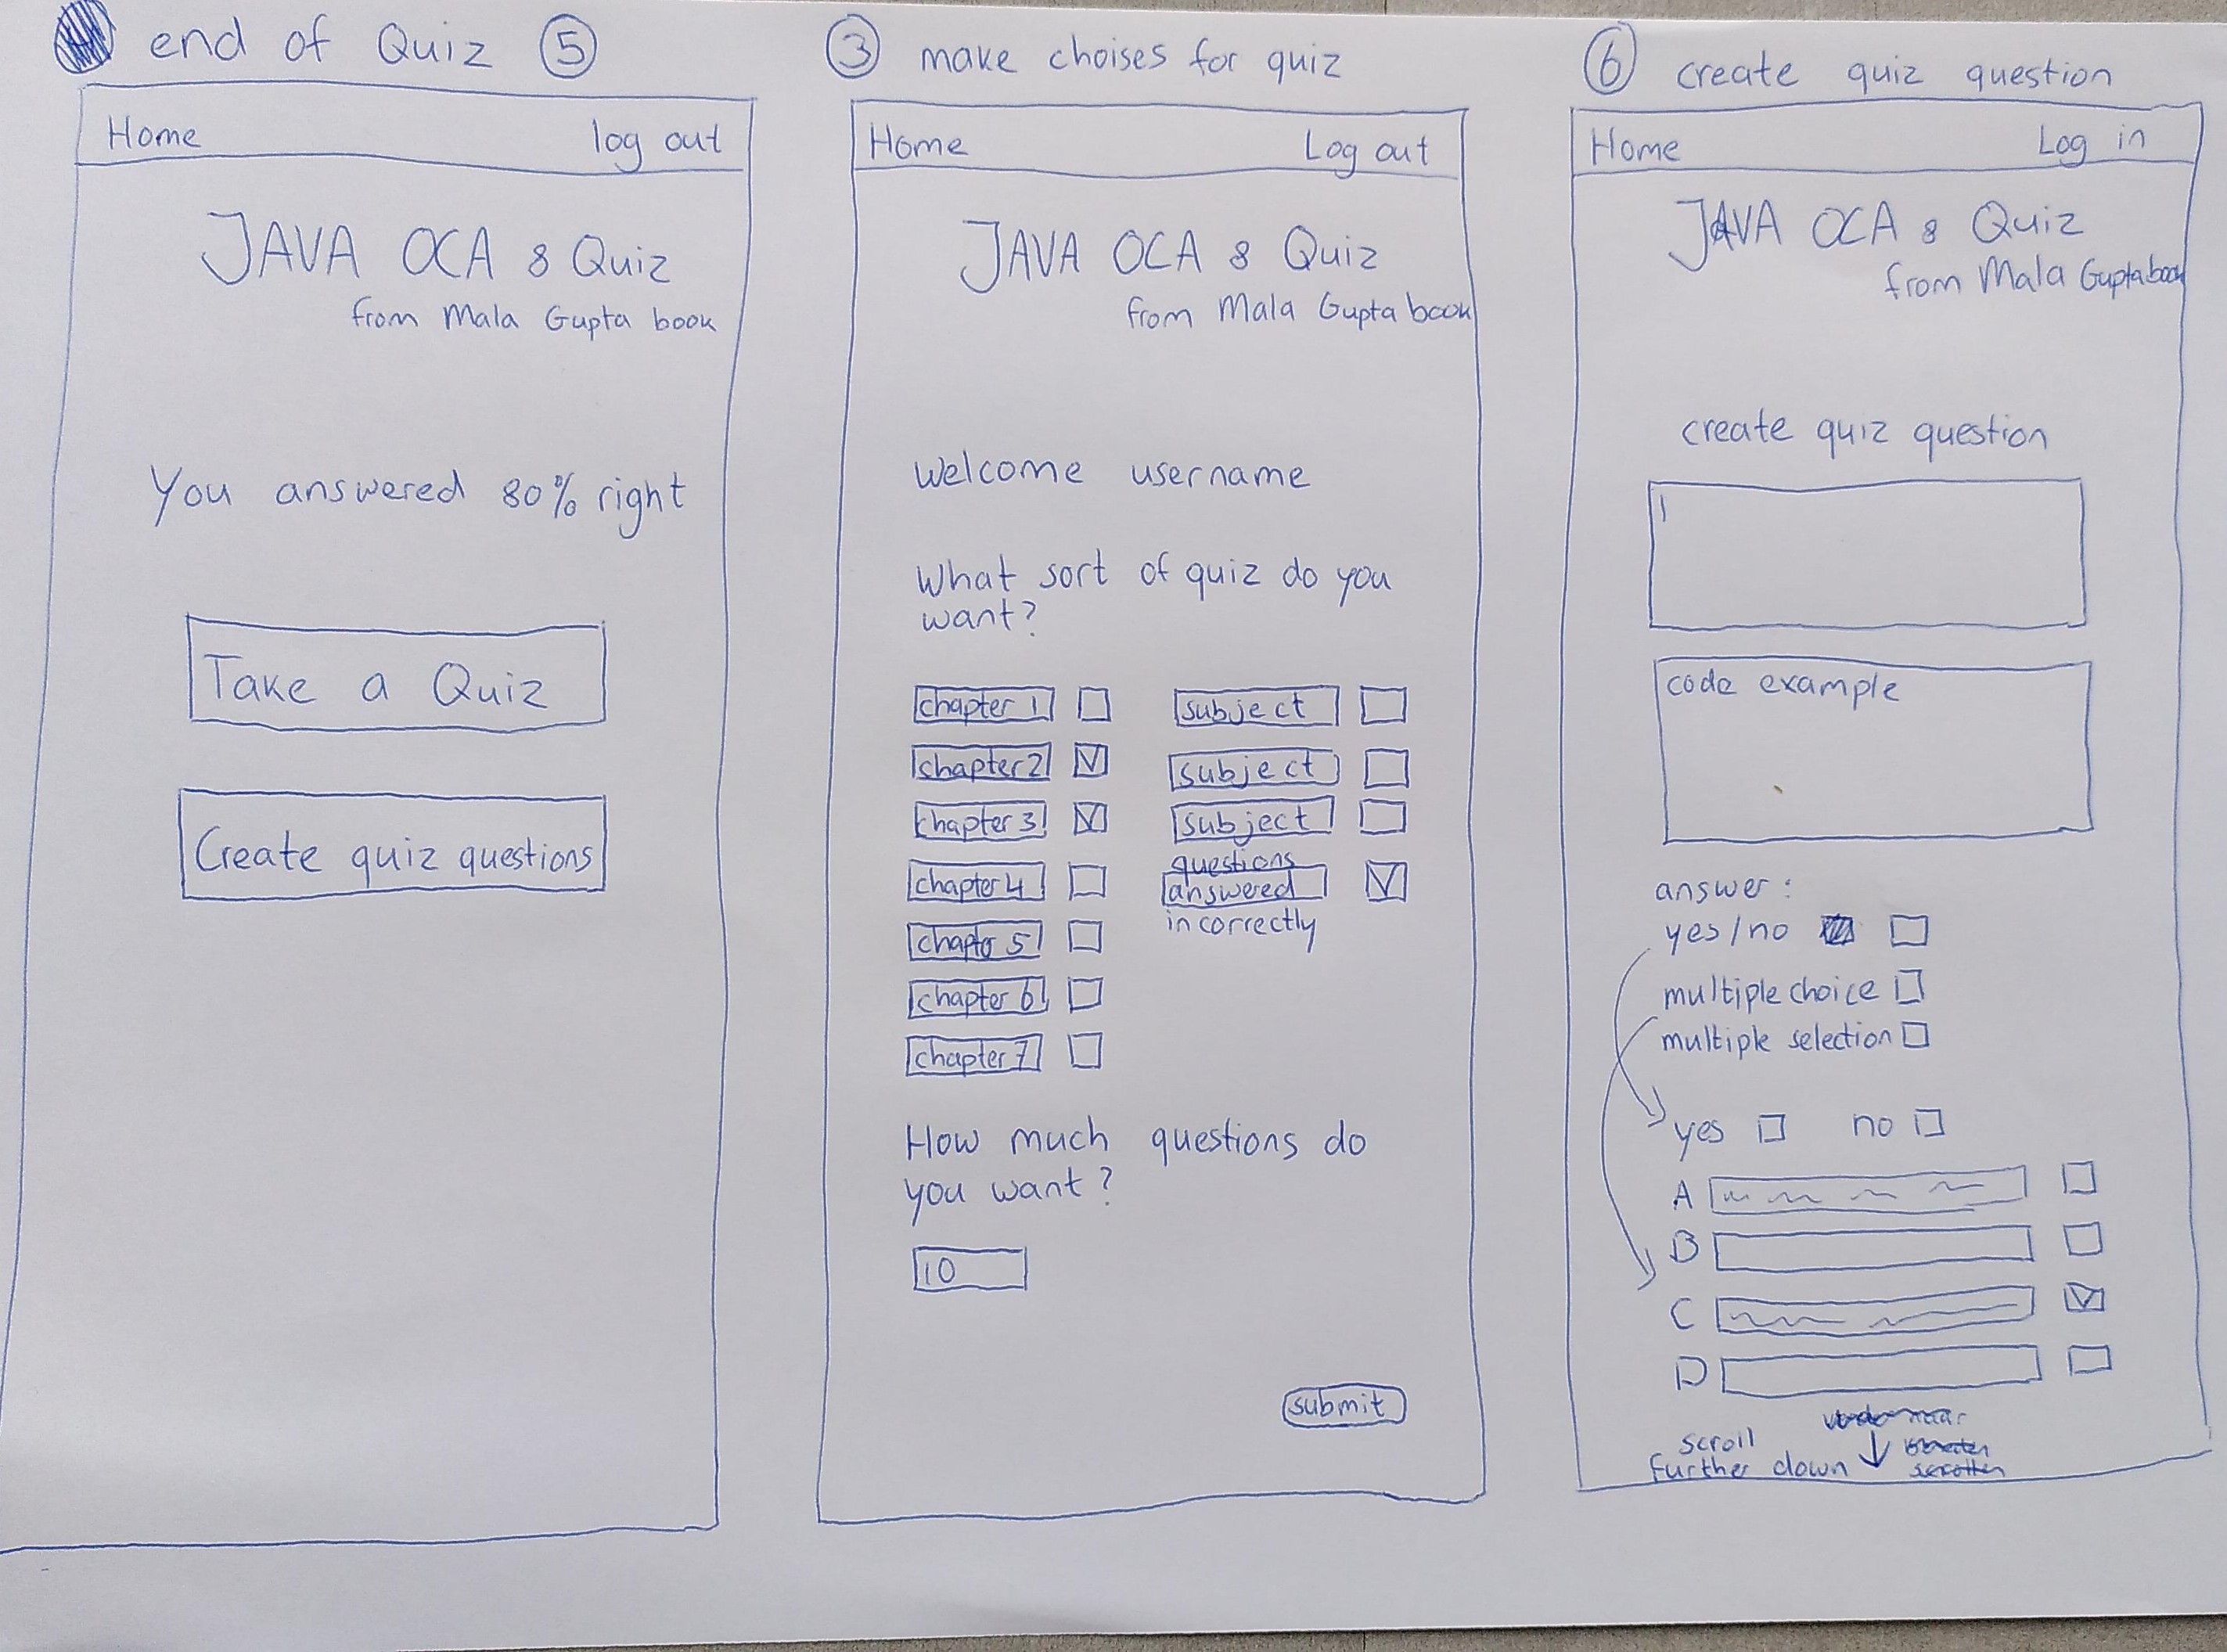 end of Quiz 5
Home log out
JAVA OCA 8 Quiz
from Mala Gupta book
You answered 80% right
Take a Quiz
Create quiz questions
3 make choises for quiz
Home Log out
JAVA OCA 8 Quiz
from Mala Gupta book
Welcome username
What sort of quiz do you
want?
chapter 1 subject
chapter 2 subject
chapter 3 subject
chapter 4 questions
answered
incorrectly
chapte 5
chapter 6
chapter 7
How much questions do
you want?
10
submit
6 create quiz question
Home Log in
JAVA OCA 8 Quiz
from Mala Gupta book
create quiz question
code example
answer:
yes/no
multiple choice
multiple selection
yes no
A
B
C
D
scroll
further down